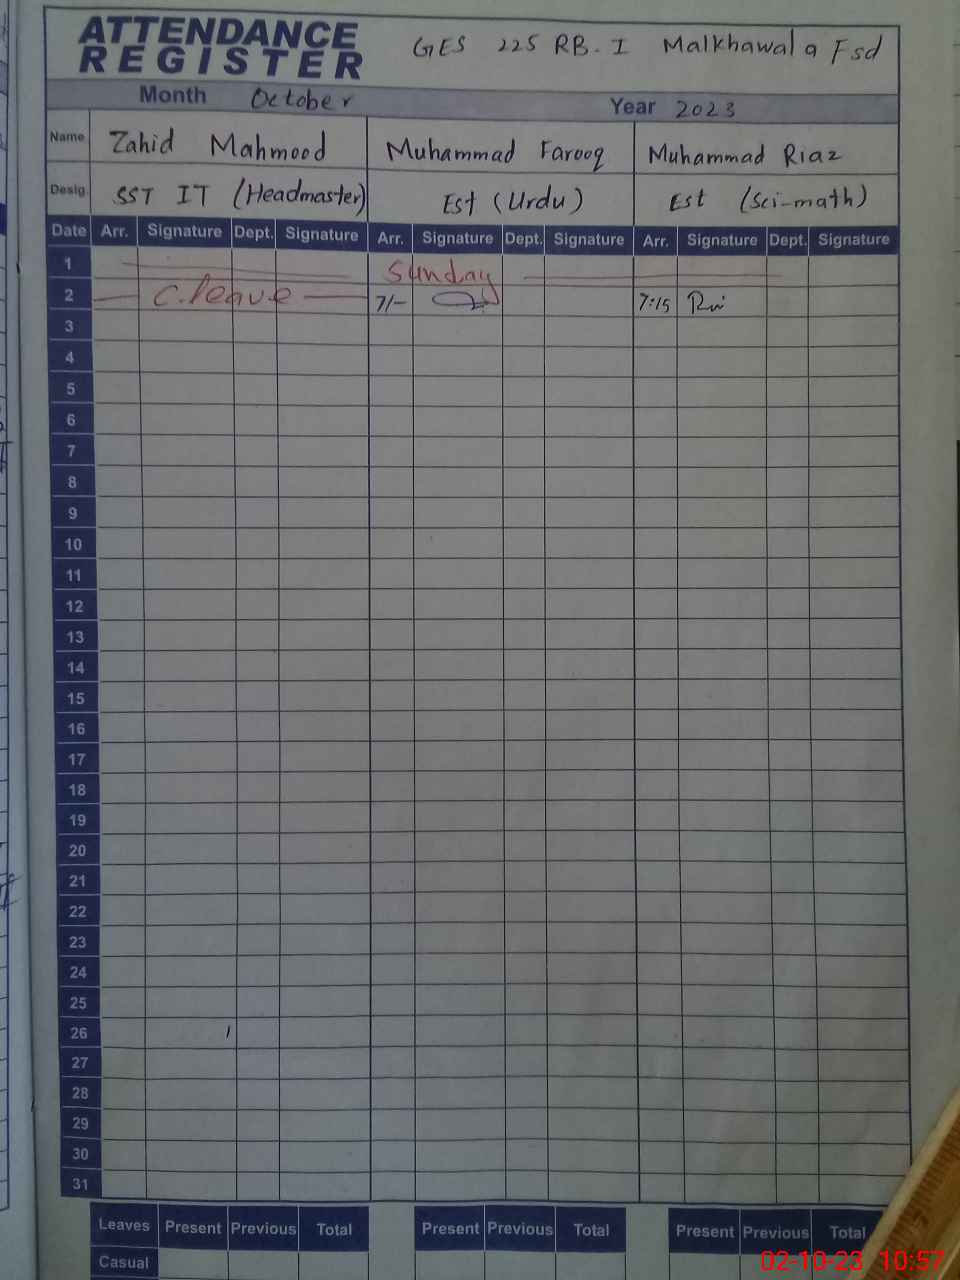 ATTENDANCE
REGISTER
GES 225 RB. I Malkhawala Fsd
Month October Year 2023
Name Zahid Mahmood Muhammad Farooq Muhammad Riaz
Desig. SST IT (Headmaster) Est (Urdu) Est (Sci-math)
Date Arr. Signature Dept. Signature Arr. Signature Dept. Signature Arr. Signature Dept. Signature
1 Sunday
2 C.leave 7/- 7:15
3
4
5
6
7
8
9
10
11
12
13
14
15
16
17
18
19
20
21
22
23
24
25
26
27
28
29
30
31
Leaves Present Previous Total Present Previous Total Present Previous Total
Casual
02-10-23 10:57